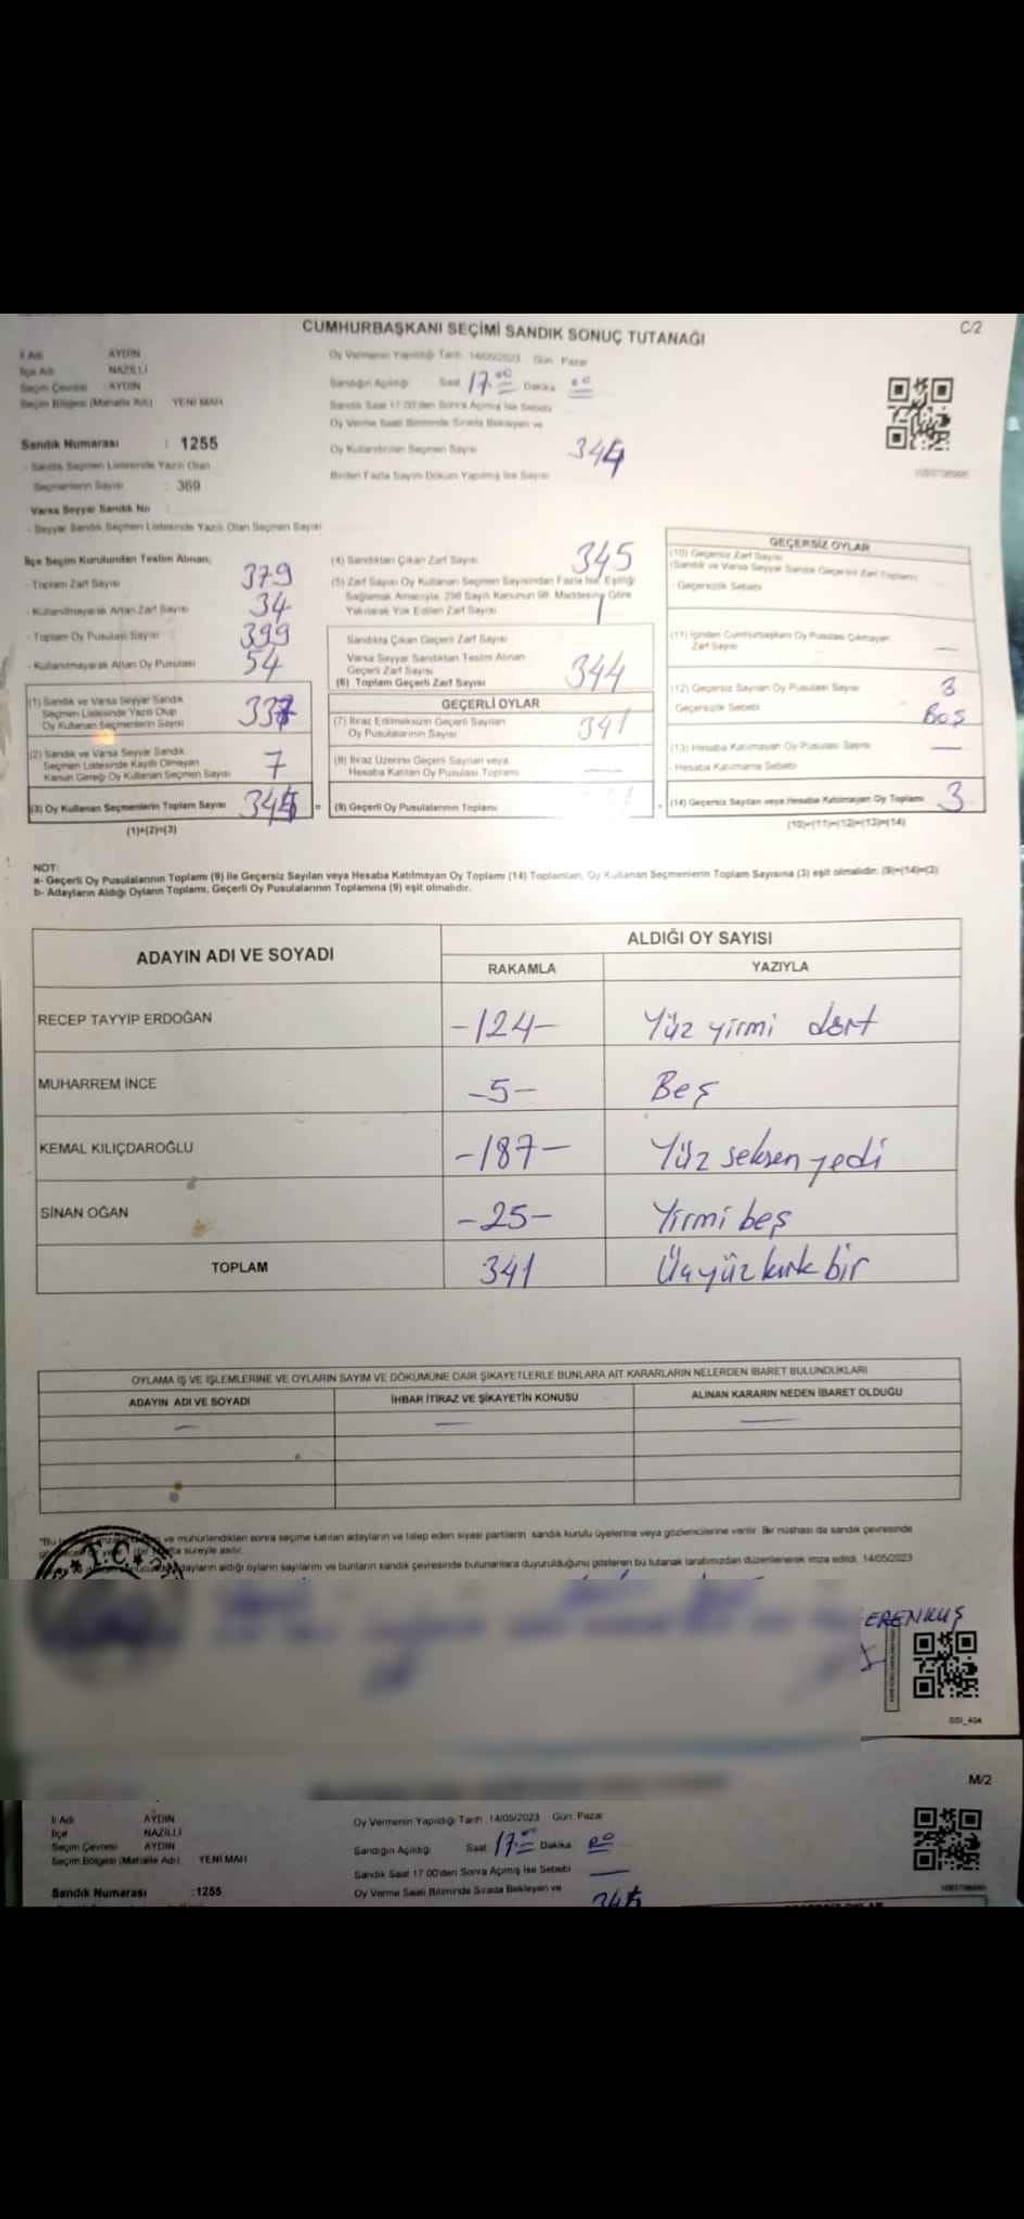 CUMHURBAŞKANI SEÇİMİ SANDIK SONUÇ TUTANAĞI
C/2
İl Adı AYDIN
İlçe Adı NAZİLLİ
Seçim Çevresi AYDIN
Seçim Bölgesi (Mahalle Adı) YENİ MAH
Sandık Numarası : 1255
- Sandık Seçmen Listesinde Yazılı Olan
Seçmenlerin Sayısı : 369
Varsa Seyyar Sandık No
- Seyyar Sandık Seçmen Listesinde Yazılı Olan Seçmen Sayısı
Oy Vermenin Yapıldığı Tarih 14/05/2023 Gün Pazar
Sandığın Açıldığı Saat 17.00 Dakika
Sandık Saat 17:00'den Sonra Açılmış İse Sebebi
Oy Verme Saati Bitiminde Sırada Bekleyen ve
Oy Kullandırılan Seçmen Sayısı
Birden Fazla Sayım Döküm Yapılmış İse Sayısı
İlçe Seçim Kurulundan Teslim Alınan;
- Toplam Zarf Sayısı 379
- Kullanılmayarak Artan Zarf Sayısı 34
- Toplam Oy Pusulası Sayısı 399
- Kullanılmayarak Artan Oy Pusulası 54
(1) Sandık ve Varsa Seyyar Sandık
Seçmen Listesinde Yazılı Olup
Oy Kullanan Seçmenlerin Sayısı 337
(2) Sandık ve Varsa Seyyar Sandık
Seçmen Listesinde Kayıtlı Olmayan
Kanun Gereği Oy Kullanan Seçmen Sayısı 7
(3) Oy Kullanan Seçmenlerin Toplam Sayısı
(1)+(2)=(3)
(4) Sandıktan Çıkan Zarf Sayısı 345
(5) Zarf Sayısı Oy Kullanan Seçmen Sayısından Fazla İse, Eşitliği
Sağlamak Amacıyla, 298 Sayılı Kanunun 98. Maddesine Göre
Yakılarak Yok Edilen Zarf Sayısı 1
Sandıkta Çıkan Geçerli Zarf Sayısı
Varsa Seyyar Sandıktan Teslim Alınan
Geçerli Zarf Sayısı
(6) Toplam Geçerli Zarf Sayısı 344
GEÇERLİ OYLAR
(7) İtiraz Edilmeksizin Geçerli Sayılan
Oy Pusulalarının Sayısı 341
(8) İtiraz Üzerine Geçerli Sayılan veya
Hesaba Katılan Oy Pusulası Toplamı —
(9) Geçerli Oy Pusulalarının Toplamı
GEÇERSİZ OYLAR
(10) Geçersiz Zarf Sayısı
(Sandık ve Varsa Seyyar Sandık Geçersiz Zarf Toplamı)
Geçersizlik Sebebi
(11) İçinden Cumhurbaşkanı Oy Pusulası Çıkmayan
Zarf Sayısı —
(12) Geçersiz Sayılan Oy Pusulası Sayısı 3
Geçersizlik Sebebi Boş
(13) Hesaba Katılmayan Oy Pusulası Sayısı —
- Hesaba Katılmama Sebebi
(14) Geçersiz Sayılan veya Hesaba Katılmayan Oy Toplamı 3
(10)+(11)+(12)+(13)=(14)
NOT:
a- Geçerli Oy Pusulalarının Toplamı (9) İle Geçersiz Sayılan veya Hesaba Katılmayan Oy Toplamı (14) Toplamları, Oy Kullanan Seçmenlerin Toplam Sayısına (3) eşit olmalıdır. (9)+(14)=(3)
b- Adayların Aldığı Oyların Toplamı, Geçerli Oy Pusulalarının Toplamına (9) eşit olmalıdır.
ADAYIN ADI VE SOYADI
ALDIĞI OY SAYISI
RAKAMLA YAZIYLA
RECEP TAYYİP ERDOĞAN -124- Yüz yirmi dört
MUHARREM İNCE -5- Beş
KEMAL KILIÇDAROĞLU -187- Yüz seksen yedi
SİNAN OĞAN -25- Yirmi beş
TOPLAM 341 Üçyüz kırk bir
OYLAMA İŞ VE İŞLEMLERİNE VE OYLARIN SAYIM VE DÖKÜMÜNE DAİR ŞİKAYETLERLE BUNLARA AİT KARARLARIN NELERDEN İBARET BULUNDUKLARI
ADAYIN ADI VE SOYADI İHBAR İTİRAZ VE ŞİKAYETİN KONUSU ALINAN KARARIN NEDEN İBARET OLDUĞU
— — —
ve mühürlendikten sonra seçime katılan adayların ve talep eden siyasi partilerin sandık kurulu üyelerine veya gözlemcilerine verilir. Bir nüshası da sandık çevresinde
süreyle asılır.
adayların aldığı oyların sayılarını ve bunların sandık çevresinde bulunanlara duyurulduğunu gösteren bu tutanak tarafımızdan düzenlenerek imza edildi. 14/05/2023
T.C.
ERENKUŞ
M/2
İl Adı AYDIN
İlçe NAZİLLİ
Seçim Çevresi AYDIN
Seçim Bölgesi (Mahalle Adı) YENİ MAH
Sandık Numarası :1255
Oy Vermenin Yapıldığı Tarih : 14/05/2023 Gün: Pazar
Sandığın Açıldığı Saat 17.00 Dakika
Sandık Saat 17:00'den Sonra Açılmış İse Sebebi —
Oy Verme Saati Bitiminde Sırada Bekleyen ve